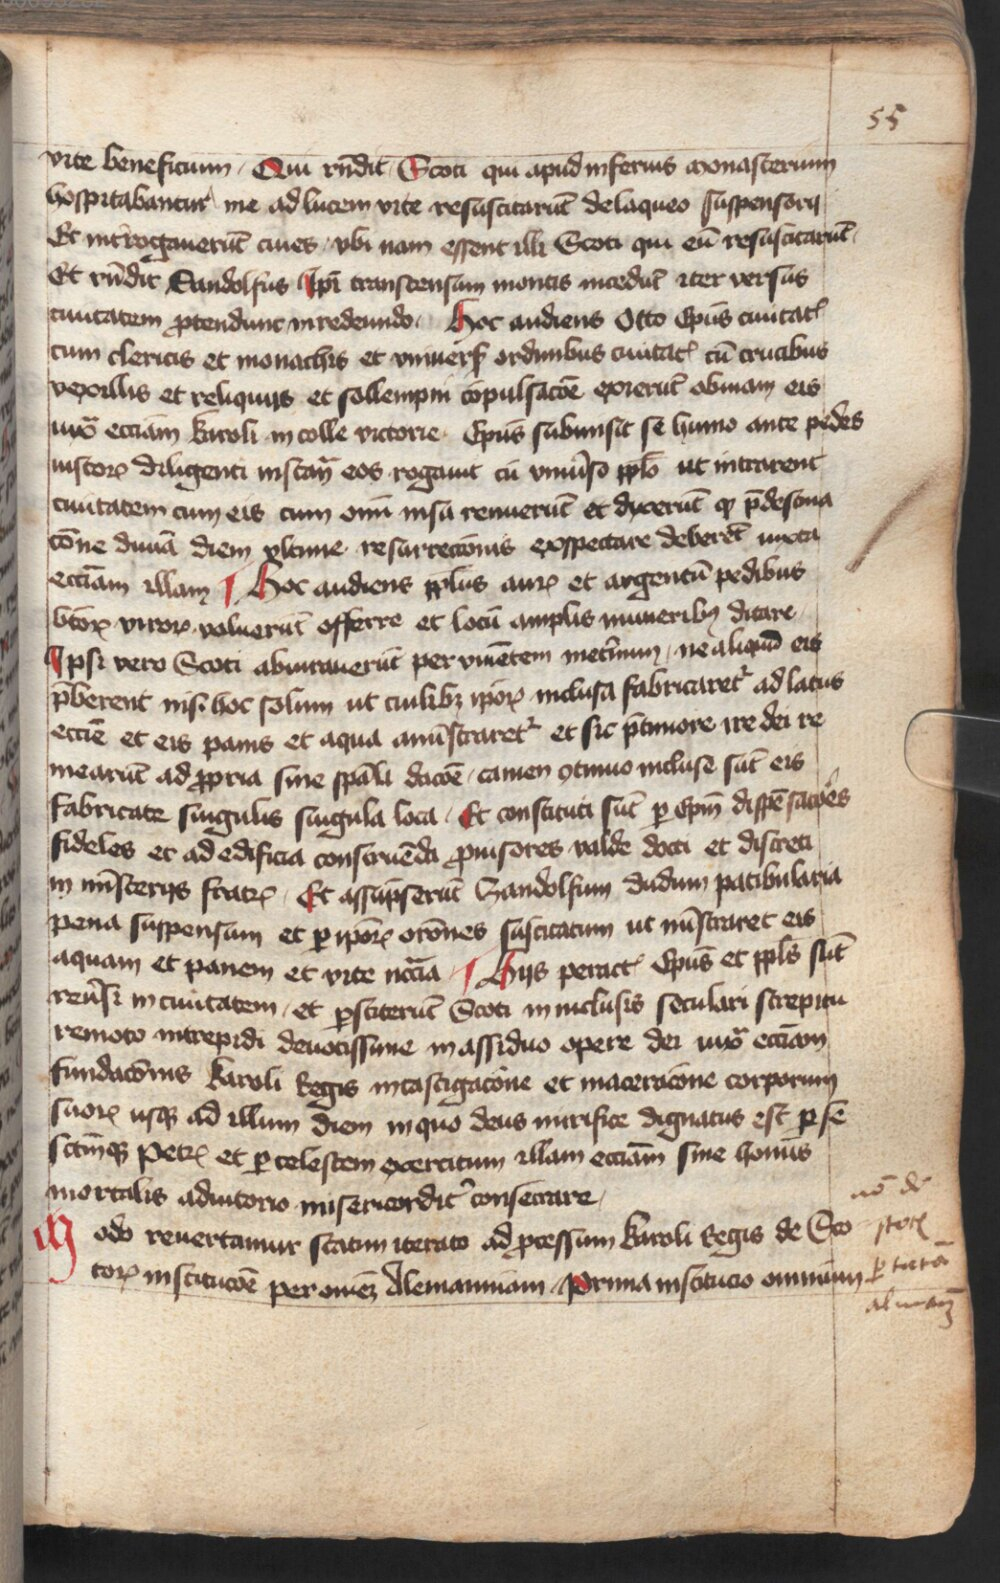 55
vite beneficium / Qui rn̄dit / Scoti qui apud inferius monasterium
hospitabantur me ad lucem vite resuscitarūt de laqueo suspensorij
Et int̄rogauerūt ciues / vbi nam essent illi Scoti qui eū resuscitarūt /
Et rn̄dit Gandolfus Ipī transcensum montis incedūt iter versus
ciuitatem ꝓtendunt in redeundo / Hoc audiens Otto Ep̄us ciuitatꝭ
cum clericis et monachis et vniuersꝭ ordinibus ciuitatꝭ cū crucibus
vexillis et reliquijs et sollempni cōpulsacōe exierūt obuiam eis
iuxͣ ecciām karoli in colle victorie Ep̄us submisit se humo ante pedes
iustoꝝ diligenti instanͣ eos rogauit cū vniūso pp̄lo ut intrarent
ciuitatem cum eis cum om̄i
 renuerūt et dixerūt ꝙ p̄destina
cōne diuinā diem vltime resurrectionis exspectare deberēt iuxta
ecciām illam ¶ Hoc audiens pp̄lus auꝝ et argentū pedibus
btōꝝ viroꝝ voluerūt offerre et locū amplis muneribꝫ ditare /
Ipsi vero Scoti abiurauerūt per viuētem
 ne aliquid eis
p̄berent nisi hoc solum ut cuilibꝫ ip̄oꝝ inclusa fabricaretᷣ ad latus
eccīe et eis panis et aqua amīstraretᷣ et sic
 ire dei re
mearūt ad ꝓpria sine spāli dacōe / tamen ꝯtinuo incluse sūt eis
fabricate singulis singula loca / Et constituti sūt ꝑ Ep̄m dispēsatōres
fideles et ad edificia construēda ꝓuisores valde docti et discreti
in mīsterijs fratꝝ / Et assūpserūt Gandolfum dudum patibularia
pena suspensum et ꝑ ip̄oꝝ orōnes suscitatum ut mīstraret eis
aquam et panem et vite nc̄cīa / ¶ Hijs peractꝭ Ep̄us et pp̄ls sūt
reūsi in ciuitatem / et ꝑstiterūt Scoti in inclusis seculari strepitu
remoto intrepidi deuotissime in assiduo opere dei iuxͣ ecciām
fundacōnis karoli Regis in castigacōne et maceracōne corporum
suoꝝ usqꝫ ad illum diem in quo deus mirifice dignatus est ꝑ se
sctm̄qꝫ Petꝝ et ꝑ celestem exercitum illam ecciām sine hominīs
mortalis adiutorio misericorditᷣ consecrare /
Modo reuertamur statim iterato ad ꝓcessum karoli Regis de Sco
toꝝ institucōe per omēꝫ Alemanniam / Prima institucio omnium
nō de
scotꝭ
ꝑ totā
almaꝫ